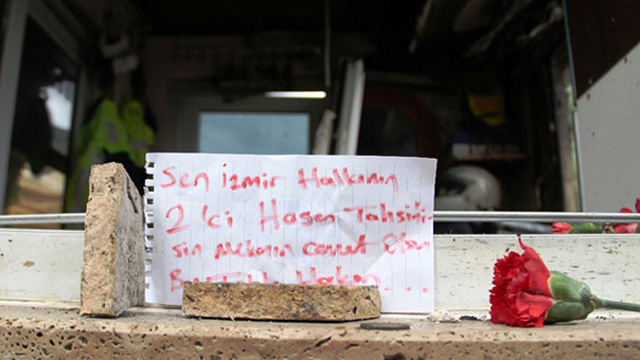 Sen İzmir Halkının
2'ci Hasan Tahsini
sin Mekanın Cennet Olsun